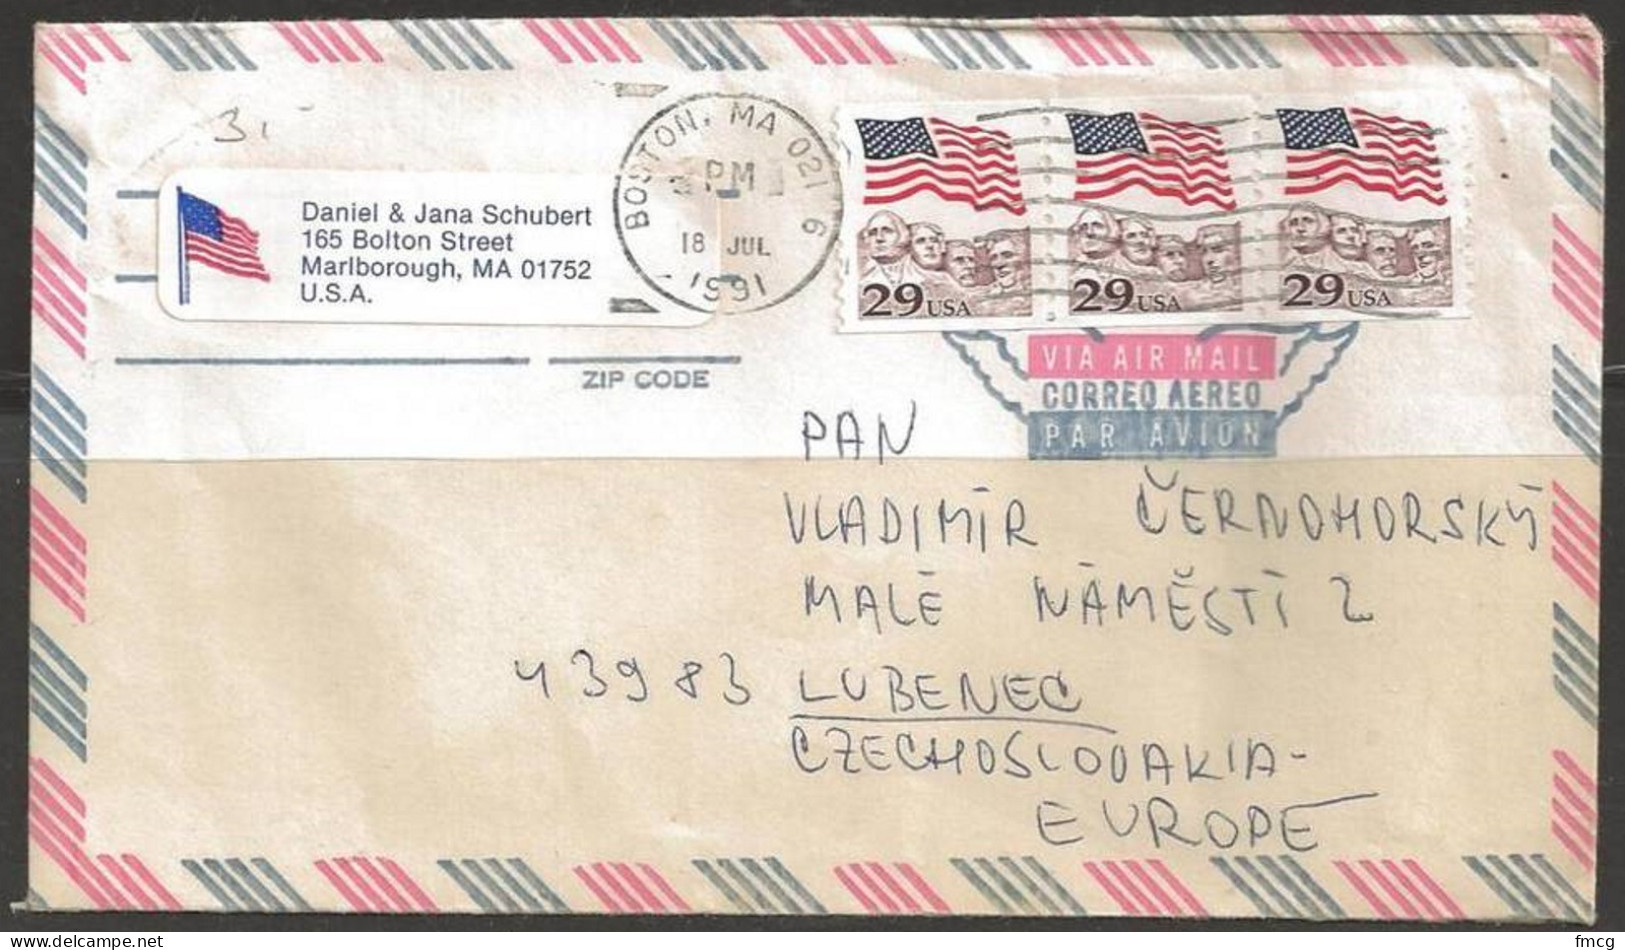 31
Daniel & Jana Schubert
165 Bolton Street
Marlborough, MA 01752
U.S.A.
BOSTON, MA 021 6
PM
18 JUL
1991
29 USA
29 USA
29 USA
ZIP CODE
VIA AIR MAIL
CORREO AEREO
PAR AVION
PAN
VLADIMÍR ČERNOHORSKÝ
MALÉ NÁMĚSTÍ 2
43983 LUBENEC
CZECHOSLOVAKIA-
EUROPE
delcampe.net
fmcg